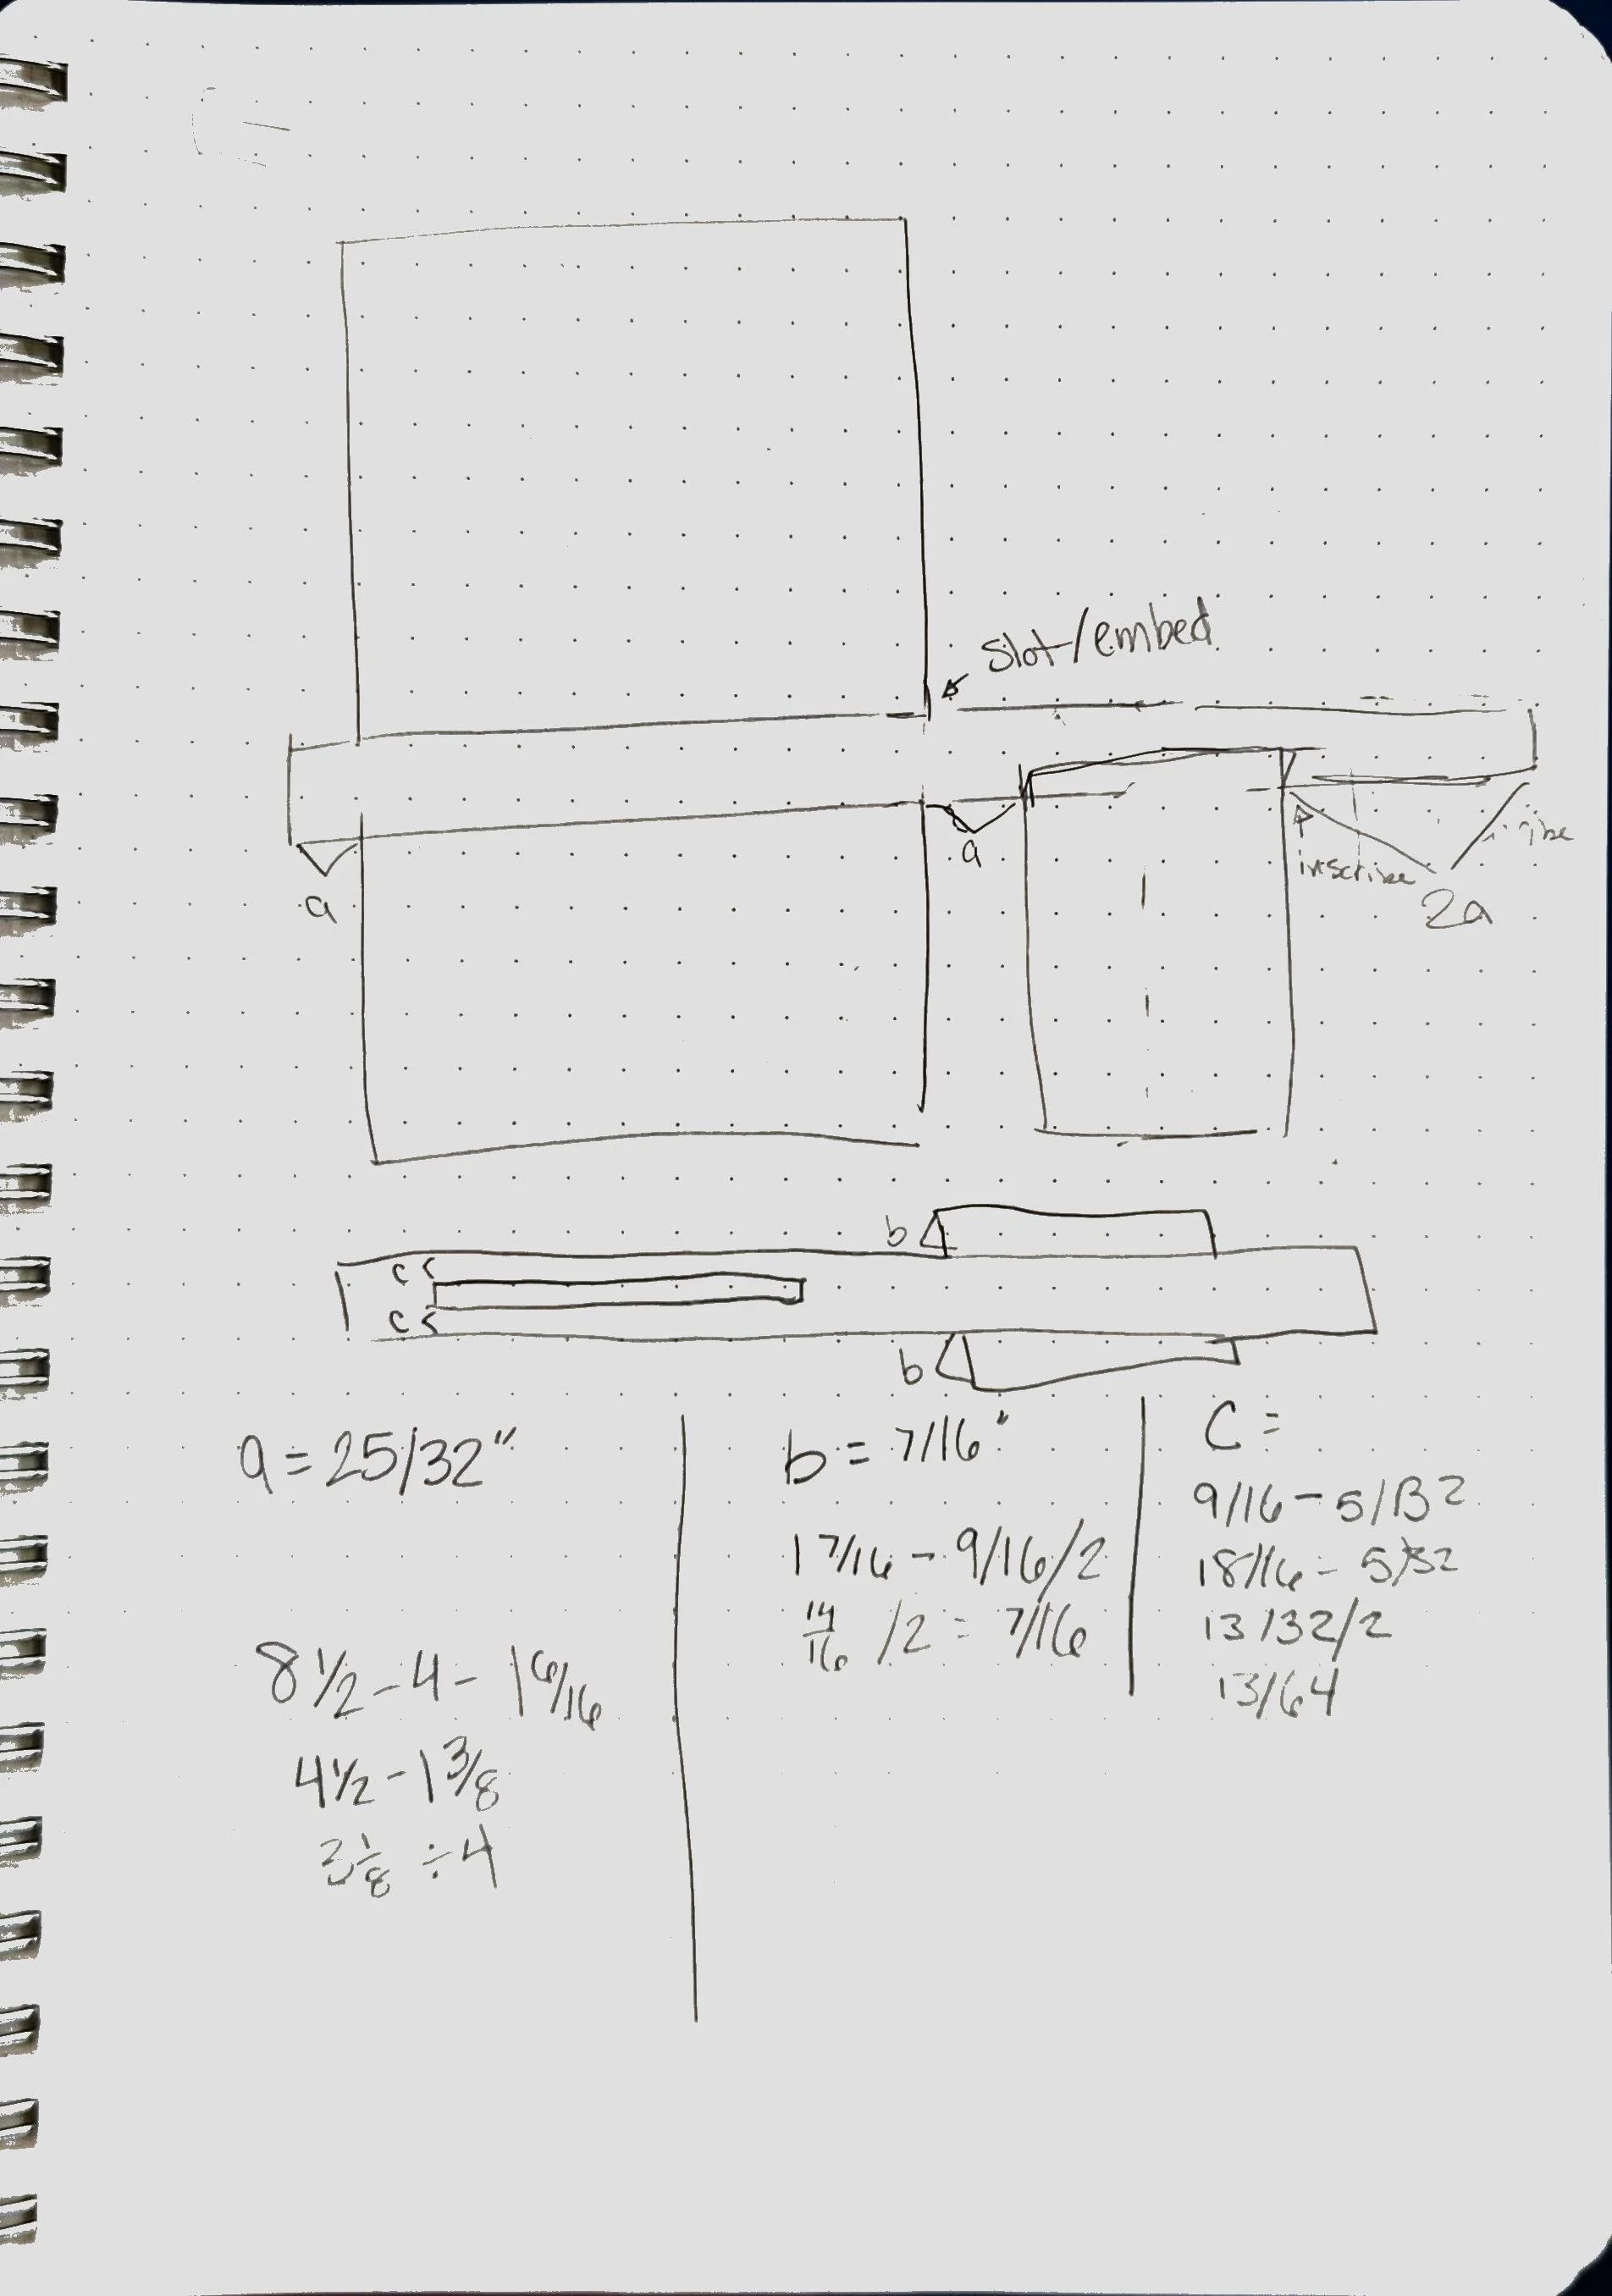 slot/embed
a
a
inscribe
2a
b
c
c
b
a = 25/32"
8 1/2 - 4 - 1 6/16
4 1/2 - 1 3/8
3 1/8 ÷ 4
b = 7/16"
1 7/16 - 9/16/2
14/16 /2 = 7/16
C =
9/16 - 5/32
18/16 - 5/32
13/32/2
13/64